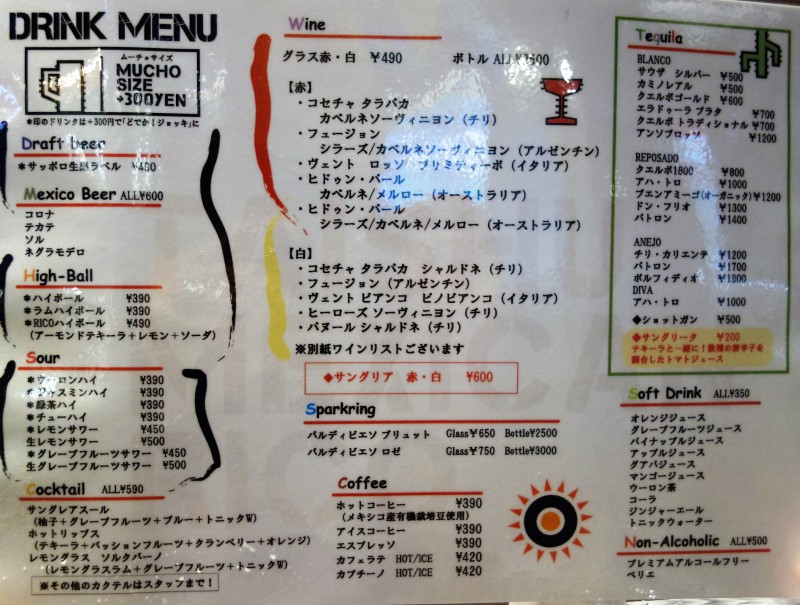 DRINK MENU
ムーチョサイズ
MUCHO
SIZE
+300YEN
*印のドリンクは+300円で「どでか！ジョッキ」に
Draft beer
*サッポロ生黒ラベル ¥490
Mexico Beer ALL¥600
コロナ
テカテ
ソル
ネグラモデロ
High-Ball
*ハイボール ¥390
*ラムハイボール ¥390
*RICOハイボール ¥490
(アーモンドテキーラ+レモン+ソーダ)
Sour
*ウーロンハイ ¥390
*ジャスミンハイ ¥390
*緑茶ハイ ¥390
*チューハイ ¥390
*レモンサワー ¥450
生レモンサワー ¥500
*グレープフルーツサワー ¥450
生グレープフルーツサワー ¥500
Cocktail ALL¥590
サングレアスール
(柚子+グレープフルーツ+ブルー+トニックW)
ホットリップス
(テキーラ+パッションフルーツ+クランベリー+オレンジ)
レモングラス ソルクバーノ
(レモングラスラム+グレープフルーツ+トニックW)
※その他のカクテルはスタッフまで！
Wine
グラス赤・白 ¥490 ボトル ALL¥2500
【赤】
・コセチャ タラパカ
カベルネソーヴィニヨン (チリ)
・フュージョン
シラーズ/カベルネソーヴィニヨン (アルゼンチン)
・ヴェント ロッソ プリミティーボ (イタリア)
・ヒドゥン・パール
カベルネ/メルロー (オーストラリア)
・ヒドゥン・パール
シラーズ/カベルネ/メルロー (オーストラリア)
【白】
・コセチャ タラパカ シャルドネ (チリ)
・フュージョン (アルゼンチン)
・ヴェント ビアンコ ピノビアンコ (イタリア)
・ヒーローズ ソーヴィニヨン (チリ)
・パヌール シャルドネ (チリ)
※別紙ワインリストございます
◆サングリア 赤・白 ¥600
Sparkring
バルディビエソ ブリュット Glass¥650 Bottle¥2500
バルディビエソ ロゼ Glass¥750 Bottle¥3000
Coffee
ホットコーヒー ¥390
(メキシコ産有機栽培豆使用)
アイスコーヒー ¥390
エスプレッソ ¥390
カフェラテ HOT/ICE ¥420
カプチーノ HOT/ICE ¥420
Tequila
BLANCO
サウザ シルバー ¥500
カミノレアル ¥500
クエルボゴールド ¥600
エラドゥーラ プラタ ¥700
クエルボ トラディショナル ¥700
アンソブロッソ ¥1200
REPOSADO
クエルボ1800 ¥800
アハ・トロ ¥1000
ブエンアミーゴ(オーガニック) ¥1200
ドン・フリオ ¥1300
パトロン ¥1400
ANEJO
チリ・カリエンテ ¥1200
パトロン ¥1700
ポルフィディオ ¥1300
DIVA
アハ・トロ ¥1000
◆ショットガン ¥500
◆サングリータ ¥200
テキーラと一緒に！数種の唐辛子を
調合したトマトジュース
Soft Drink ALL¥350
オレンジジュース
グレープフルーツジュース
パイナップルジュース
アップルジュース
グアバジュース
マンゴージュース
ウーロン茶
コーラ
ジンジャーエール
トニックウォーター
Non-Alcoholic ALL¥500
プレミアムアルコールフリー
ペリエ